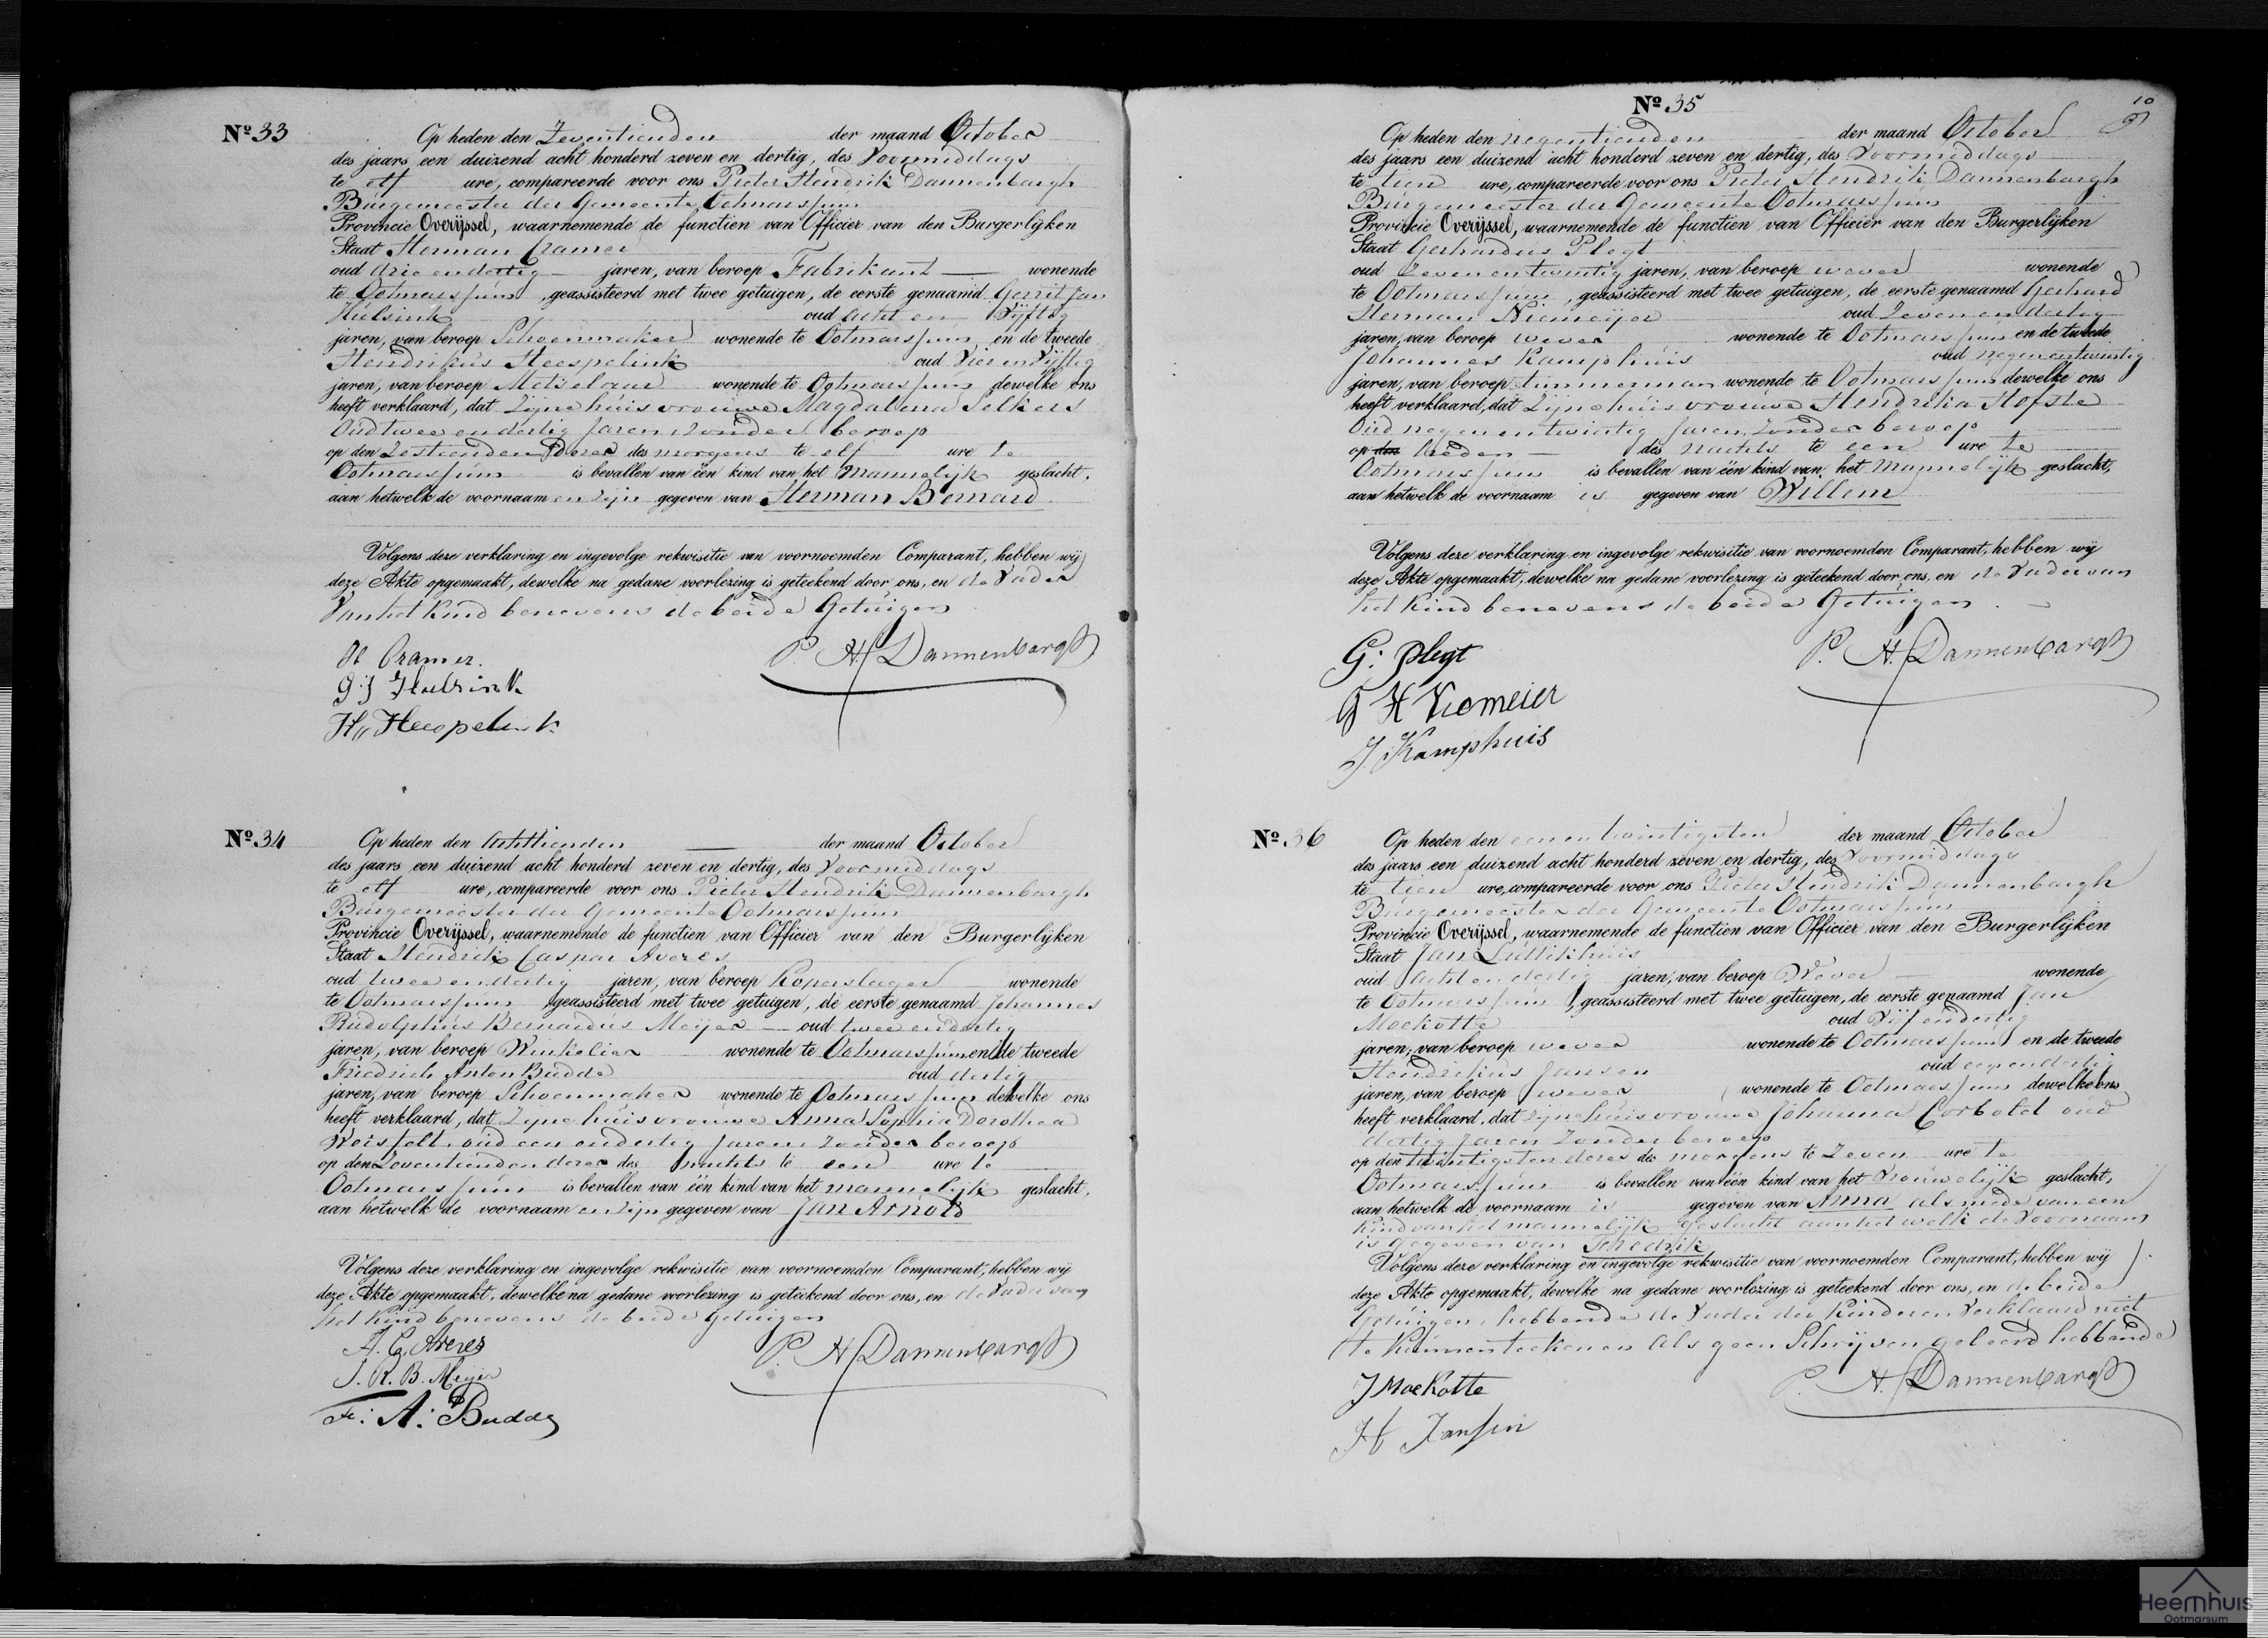 Nº 33
Op heden den Zeventienden der maand October
des jaars een duizend acht honderd zeven en dertig, des Voormiddags
te elf ure, compareerde voor ons Pieter Hendrik Dannenbargh
Burgemeester der Gemeente Ootmarssum
Provincie Overijssel, waarnemende de functien van Officier van den Burgerlijken
Staat Herman Cramer
oud drie en dertig jaren, van beroep Fabrikant wonende
te Ootmarssum, geassisteerd met twee getuigen, de eerste genaamd Gerrit Jan
Hulsink oud acht en Vijftig
jaren, van beroep Schoenmaker wonende te Ootmarssum en de tweede
Hendrikus Heespelink oud Vier en Vijftig
jaren, van beroep Metselaar wonende te Ootmarssum dewelke ons
heeft verklaard, dat Zijne huisvrouwe Magdalena Selkers
Oud twee en dertig Jaren zonder beroep
op den Zestienden dezer des morgens te elf ure te
Ootmarssum is bevallen van één kind van het Mannelijk geslacht,
aan hetwelk de voornaam en zijn gegeven van Herman Bernard
Volgens deze verklaring en ingevolge rekwisitie van voornoemden Comparant, hebben wij
deze Akte opgemaakt, dewelke na gedane voorlezing is geteekend door ons, en de Vader
Van het Kind benevens de beide Getuigen
H Cramer.
P. H. Dannenbargh
G:J Hulsink
H,, Heespelink
Nº 34
Op heden den Achttienden der maand October
des jaars een duizend acht honderd zeven en dertig, des Voormiddags
te elf ure, compareerde voor ons Pieter Hendrik Dannenbargh
Burgemeester der Gemeente Ootmarssum
Provincie Overijssel, waarnemende de functien van Officier van den Burgerlijken
Staat Hendrik Caspar Averes
oud twee en dertig jaren, van beroep Koperslager wonende
te Ootmarssum geassisteerd met twee getuigen, de eerste genaamd Johannes
Rudolphus Bernardus Meijer oud twee en dertig
jaren, van beroep Winkelier wonende te Ootmarssum en de tweede
Friedrich Anton Budde oud dertig
jaren, van beroep Schoenmaker wonende te Ootmarssum dewelke ons
heeft verklaard, dat Zijne huisvrouwe Anna Sophia Dorothea
oud een en dertig Jaren zonder beroep
op den Zeventienden dezer des nachts te een ure te
Ootmarssum is bevallen van één kind van het mannelijk geslacht,
aan hetwelk de voornaam en zijn gegeven van Jan Arnold
Volgens deze verklaring en ingevolge rekwisitie van voornoemden Comparant, hebben wij
deze Akte opgemaakt, dewelke na gedane voorlezing is geteekend door ons, en de Vader van
het Kind benevens de beide Getuigen
H. C. Averes
P. H. Dannenbargh
J. R. B. Meijer
Fr: A: Budde
10
Nº 35
Op heden den negentienden der maand October
des jaars een duizend acht honderd zeven en dertig, des Voormiddags
te tien ure, compareerde voor ons Pieter Hendrik Dannenbargh
Burgemeester der Gemeente Ootmarssum
Provincie Overijssel, waarnemende de functien van Officier van den Burgerlijken
Staat Gerhardus Plegt
oud Zeven en twintig jaren, van beroep wever wonende
te Ootmarssum, geassisteerd met twee getuigen, de eerste genaamd Gerhard
Herman Niemeijer oud Zeven en dertig
jaren, van beroep wever wonende te Ootmarssum en de tweede
Johannes Kamphuis oud negen en twintig
jaren, van beroep timmerman wonende te Ootmarssum dewelke ons
heeft verklaard, dat Zijne huisvrouwe Hendrika Hofste
Oud negen en twintig Jaren, Zonder beroep
op den heden des nachts te een ure te
Ootmarssum is bevallen van één kind van het Mannelijk geslacht,
aan hetwelk de voornaam is gegeven van Willem
Volgens deze verklaring en ingevolge rekwisitie van voornoemden Comparant, hebben wij
deze Akte opgemaakt, dewelke na gedane voorlezing is geteekend door ons, en de Vader van
het Kind benevens de beide Getuigen
G: Plegt
P. H. Dannenbargh
G H Niemeier
J. Kamphuis
Nº 36
Op heden den een en twintigsten der maand October
des jaars een duizend acht honderd zeven en dertig, des Voormiddags
te tien ure, compareerde voor ons Pieter Hendrik Dannenbargh
Burgemeester der Gemeente Ootmarssum
Provincie Overijssel, waarnemende de functien van Officier van den Burgerlijken
Staat Jan Luttikhuis
oud Acht en dertig jaren, van beroep Wever wonende
te Ootmarssum, geassisteerd met twee getuigen, de eerste genaamd Jan
Moekotte oud Vijf en dertig
jaren, van beroep wever wonende te Ootmarssum en de tweede
Hendrikus Jansen oud een en dertig
jaren, van beroep wever wonende te Ootmarssum dewelke ons
heeft verklaard, dat zijne huisvrouwe Johanna Corbeld oud
dertig Jaren Zonder beroep
op den twintigsten dezer des morgens te Zeven ure te
Ootmarssum is bevallen van één kind van het Vrouwelijk geslacht,
aan hetwelk de voornaam is gegeven van Anna als mede van een
Kind van het mannelijk geslacht aan het welk de Voornaam
is gegeven van
Volgens deze verklaring en ingevolge rekwisitie van voornoemden Comparant, hebben wij
deze Akte opgemaakt, dewelke na gedane voorlezing is geteekend door ons, en de beide
Getuigen, hebbende de Vader der Kinderen Verklaard niet
te Kunnen teekenen Als geen Schrijven geleerd hebbende
J Moekotte
P. H. Dannenbargh
H Jansen
Heemhuis
Ootmarsum